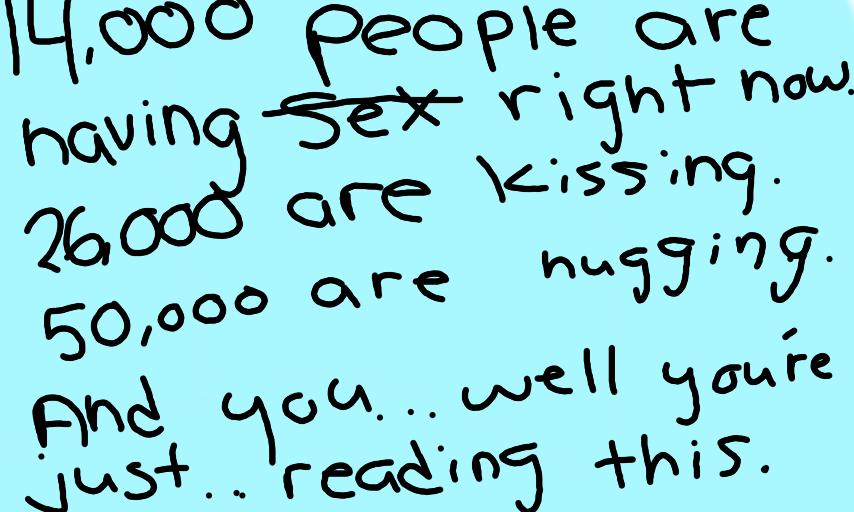 14,000 people are
having sex right now.
26,000 are kissing.
50,000 are hugging.
And you... well you're
just... reading this.